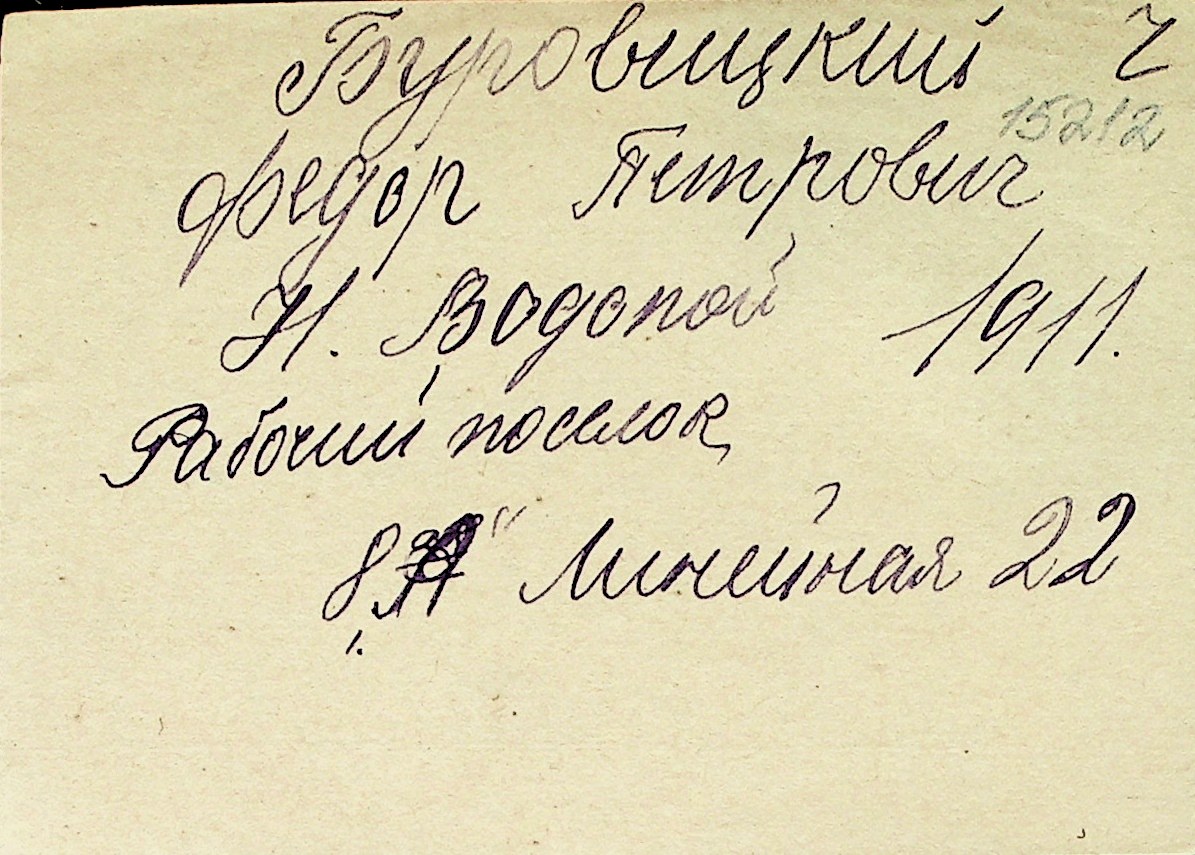 Буровицкий ч
15212
Федор Петрович
Н. Водопой 1911.
Рабочий поселок
8 " Линейная 22